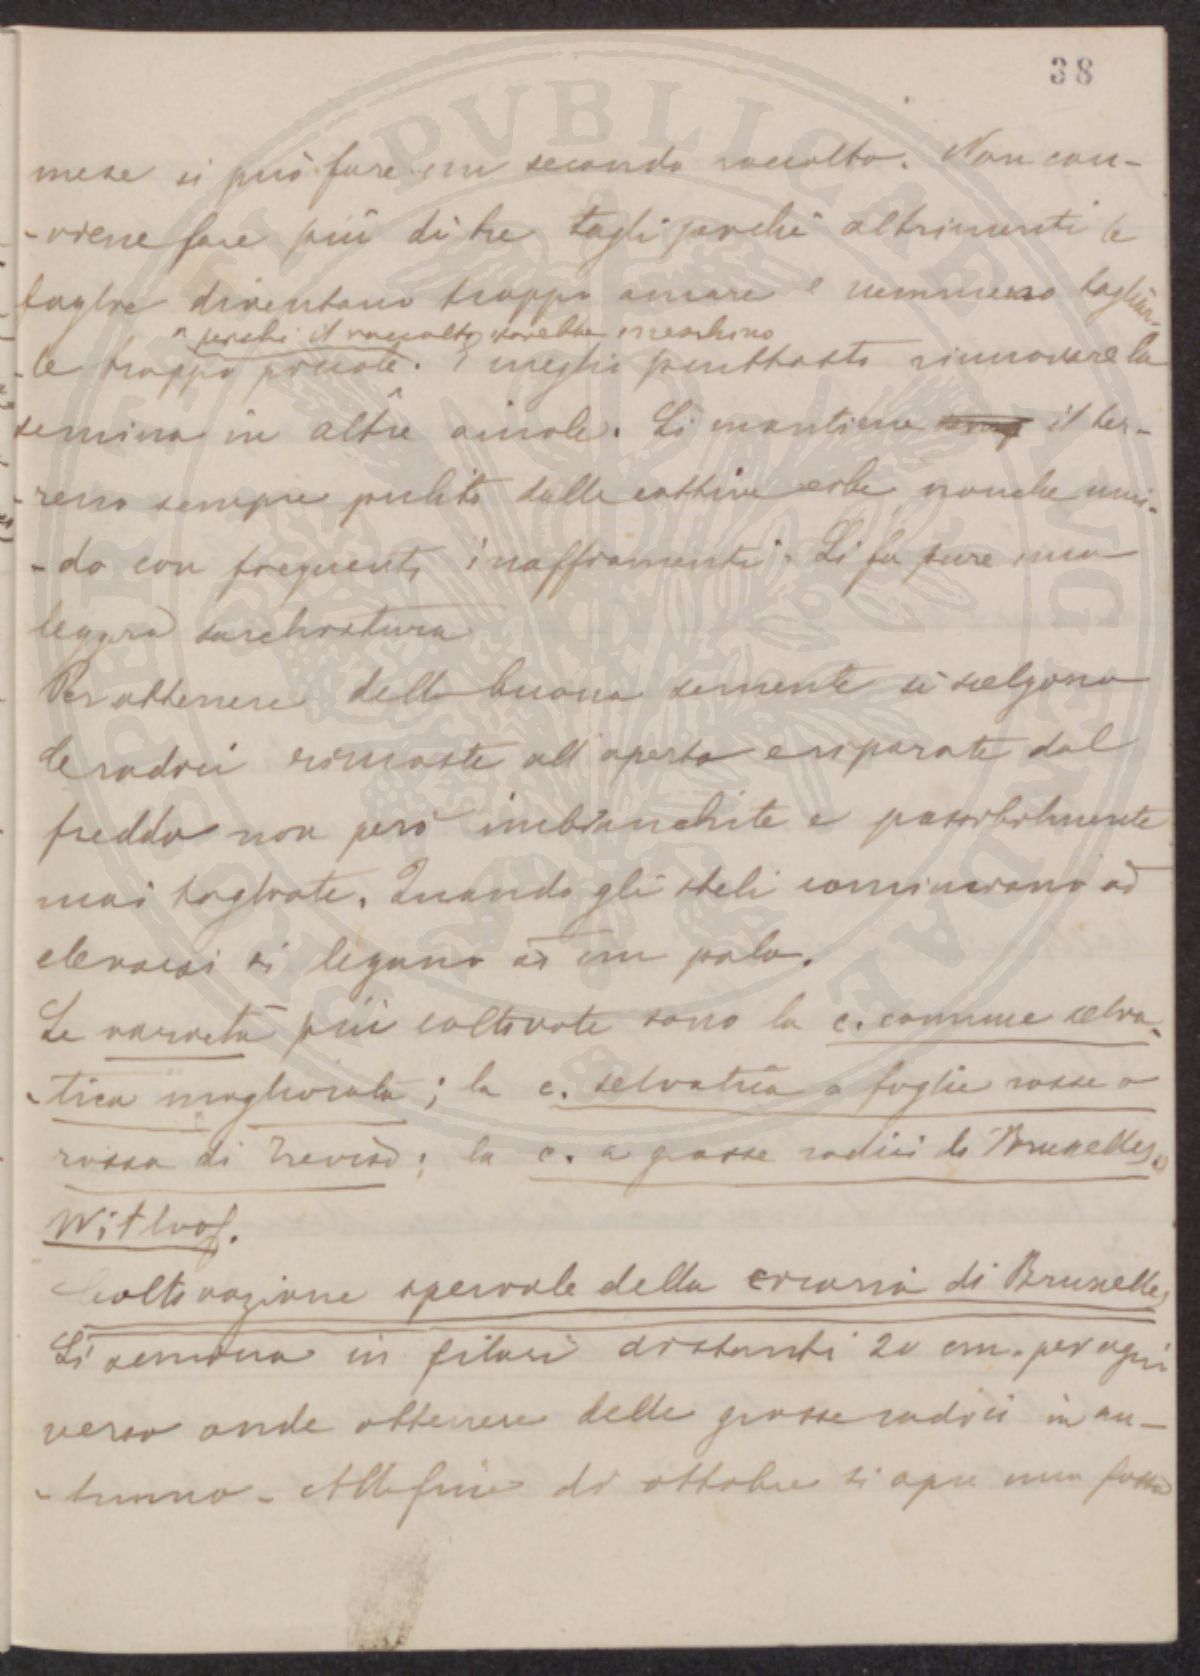 38
mese si può fare un secondo raccolto. Non con-
-viene fare più di tre tagli perchè altrimenti le
foglie diventano troppo amare e nemmeno tagliar-
perchè il raccolto sarebbe meschino
-le troppo piccole. È meglio piuttosto rinnovare la
semina in altre aiuole. Si mantiene il ter-
-reno sempre pulito dalle cattive erbe nonche umi-
-do con frequenti inaffiamenti. Si fa pure una
leggera sarchiatura
Per ottenere delle buona semente si scelgono
le radici rimaste all'aperto e riparate dal
freddo non però imbianchite e possibilmente
mai tagliate. Quando gli steli cominciano ad
elevarsi si legano ad un palo.
Le varietà più coltivate sono la c. comune selva-
-tica migliorata; la c. selvatica a foglie rosse o
rossa di Treviso; la c. a grosse radici di Bruxelles o
Witloof.
Coltivazione speciale della cicoria di Bruxelles
Si semina in filari distanti 20 cm. per ogni
verso onde ottenere delle grosse radici in au-
-tunno - Alla fine di ottobre si apre una fossa
PVBLICAE OPERI AVGENDAE